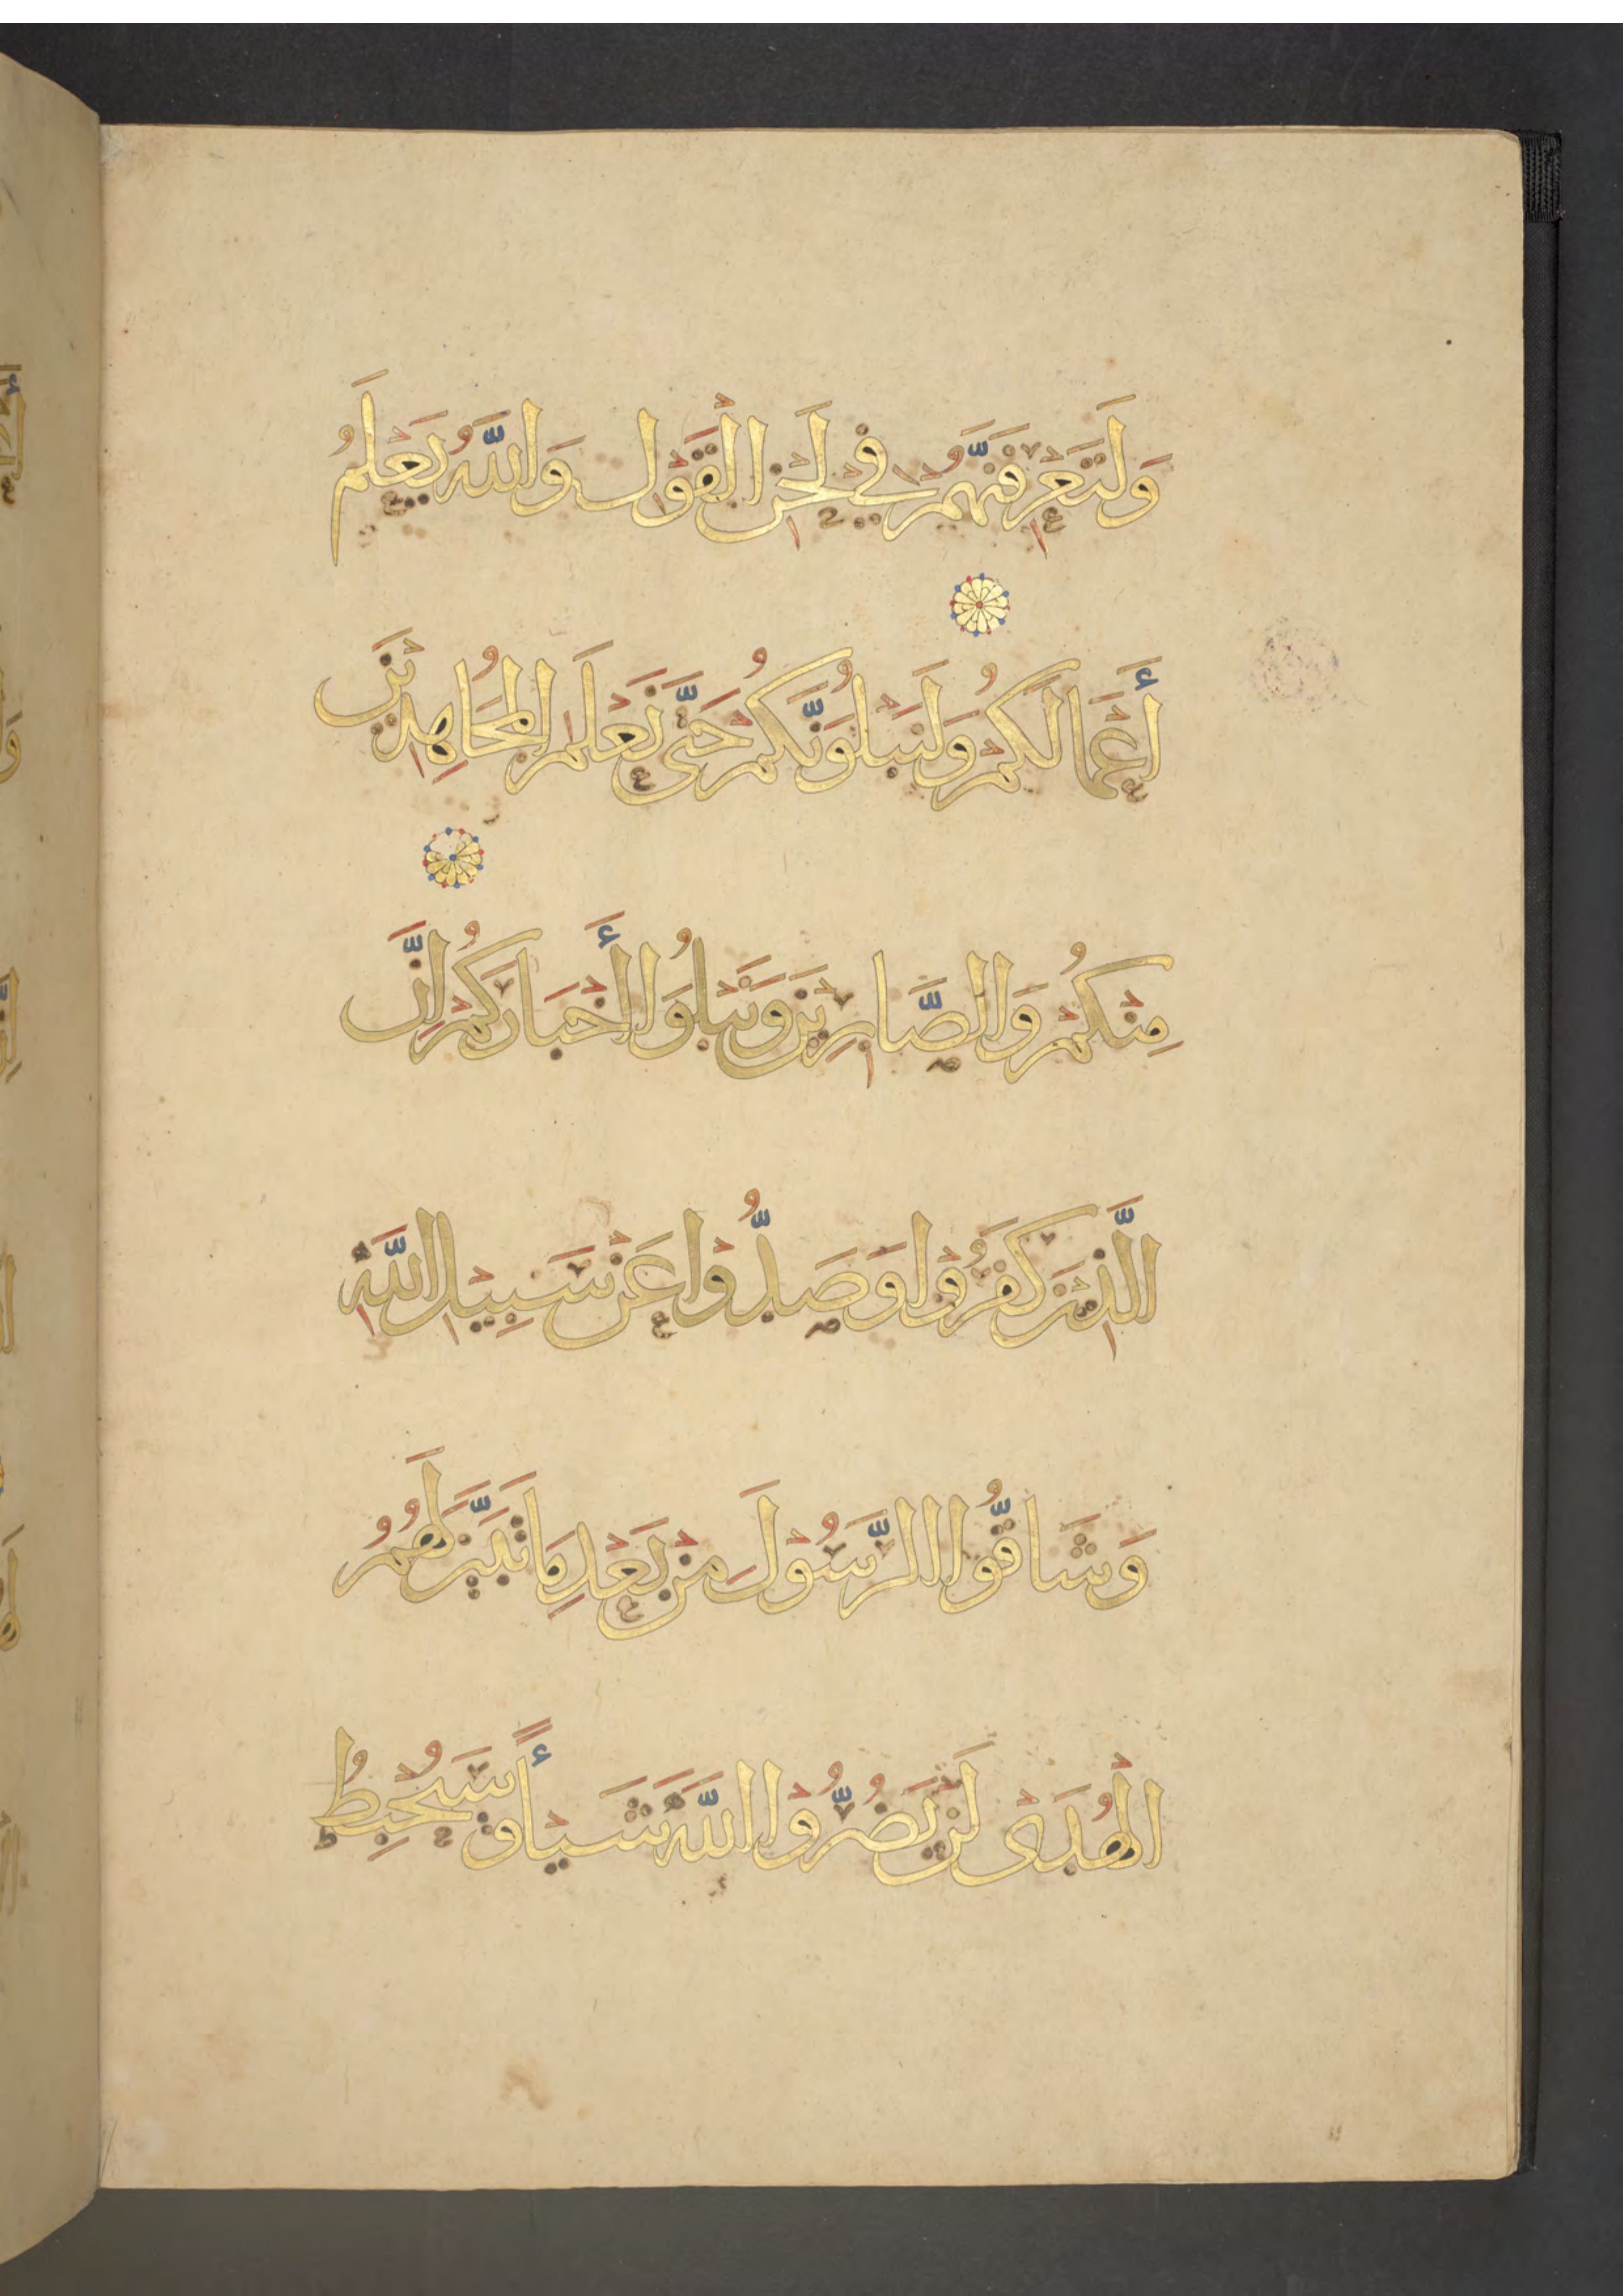 وَلَتَعْرِفَنَّهُمْ فِي لَحْنِ الْقَوْلِ وَاللَّهُ يَعْلَمُ
أَعْمَالَكُمْ وَلَنَبْلُوَنَّكُمْ حَتَّى نَعْلَمَ الْمُجَاهِدِينَ
مِنْكُمْ وَالصَّابِرِينَ وَنَبْلُوَا أَخْبَارَكُمْ إِنَّ
الَّذِينَ كَفَرُوا وَصَدُّوا عَنْ سَبِيلِ اللَّهِ
وَشَاقُّوا الرَّسُولَ مِنْ بَعْدِ مَا تَبَيَّنَ لَهُمُ
الْهُدَى لَنْ يَضُرُّوا اللَّهَ شَيْأً وَسَيُحْبِطُ